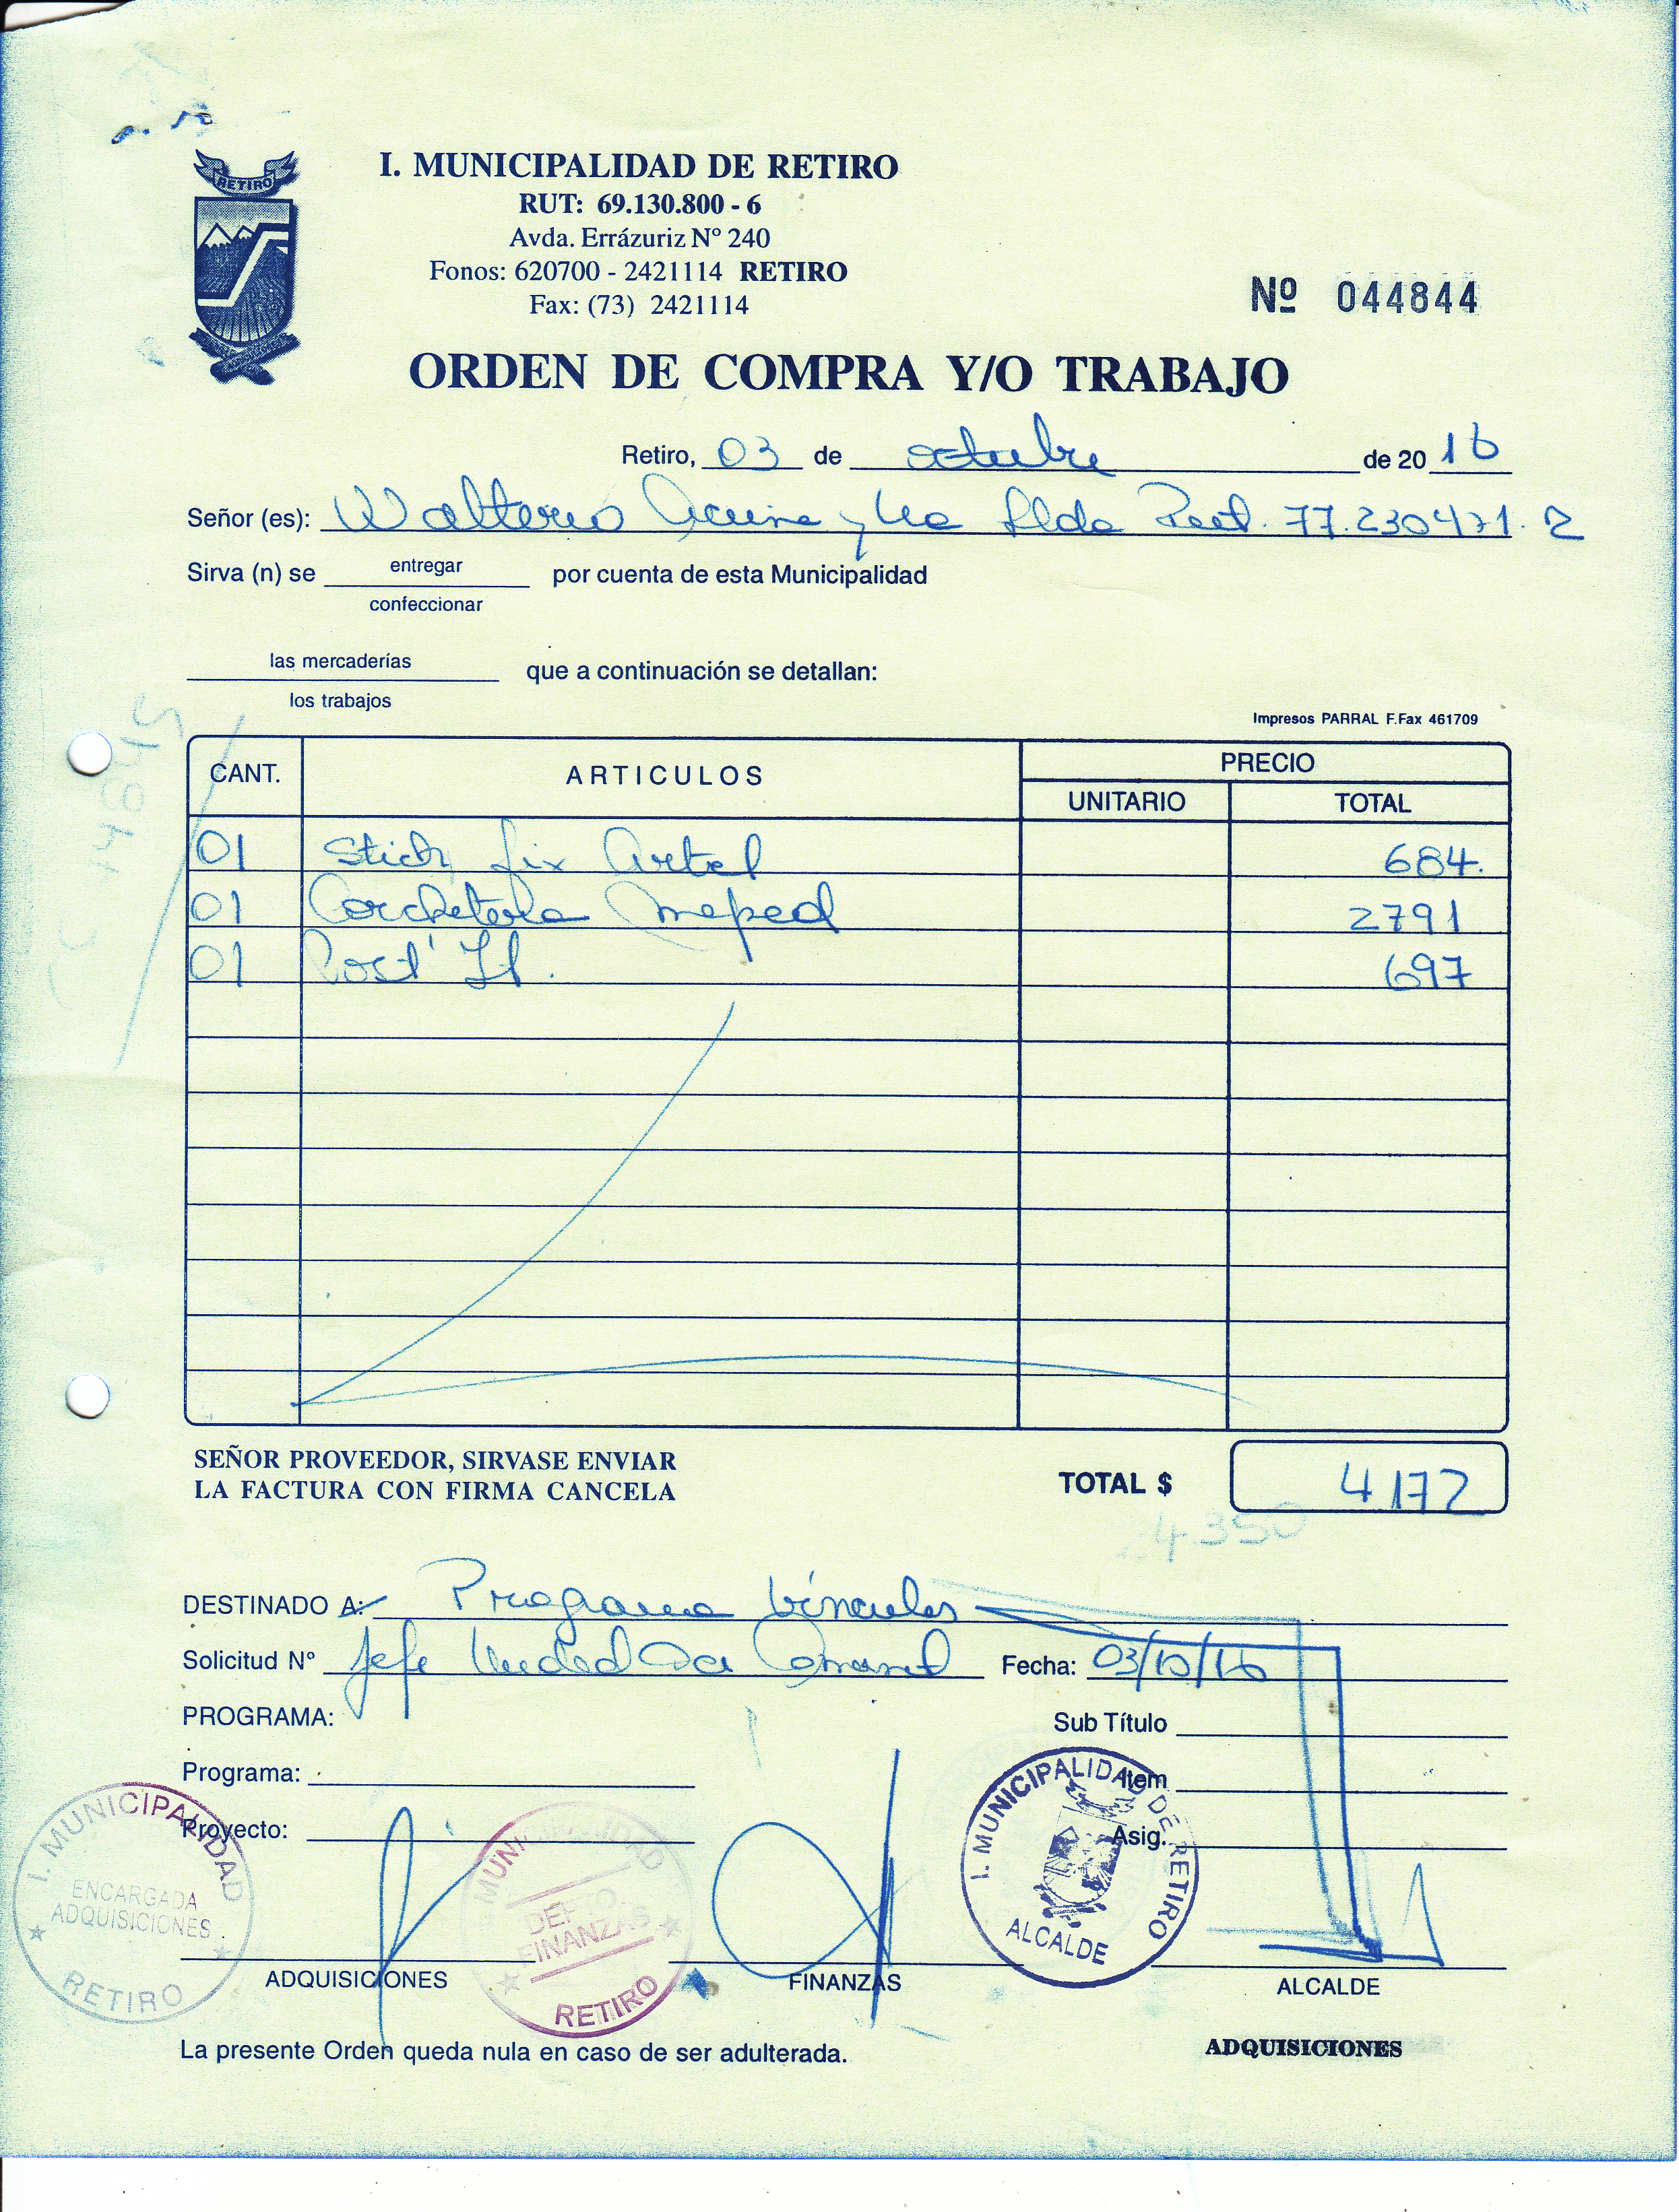 RETIRO
I. MUNICIPALIDAD DE RETIRO
RUT: 69.130.800 - 6
Avda. Errázuriz Nº 240
Fonos: 620700 - 2421114 RETIRO
Fax: (73) 2421114
Nº 044844
ORDEN DE COMPRA Y/O TRABAJO
Retiro, 03 de octubre de 2016
Señor (es): Walterio y Cia Ltda Rut. 77.230471.2
Sirva (n) se entregar por cuenta de esta Municipalidad
confeccionar
las mercaderías que a continuación se detallan:
los trabajos
Impresos PARRAL F.Fax 461709
CANT. ARTICULOS PRECIO
UNITARIO TOTAL
01 Stick fix Artel 684.
01 Corchetera 2791
01 Post' It. 697
SEÑOR PROVEEDOR, SIRVASE ENVIAR
LA FACTURA CON FIRMA CANCELA
TOTAL $ 4172
4350
DESTINADO A: Programa Vínculos
Solicitud Nº Jefe Unidad Fecha: 03/10/16
PROGRAMA:
Sub Título
Programa:
Item
Proyecto:
Asig.
I. MUNICIPALIDAD
ENCARGADA
ADQUISICIONES
RETIRO
MUNICIPALIDAD
DEPTO
FINANZAS
RETIRO
I. MUNICIPALIDAD DE RETIRO
ALCALDE
ADQUISICIONES FINANZAS ALCALDE
La presente Orden queda nula en caso de ser adulterada.
ADQUISICIONES